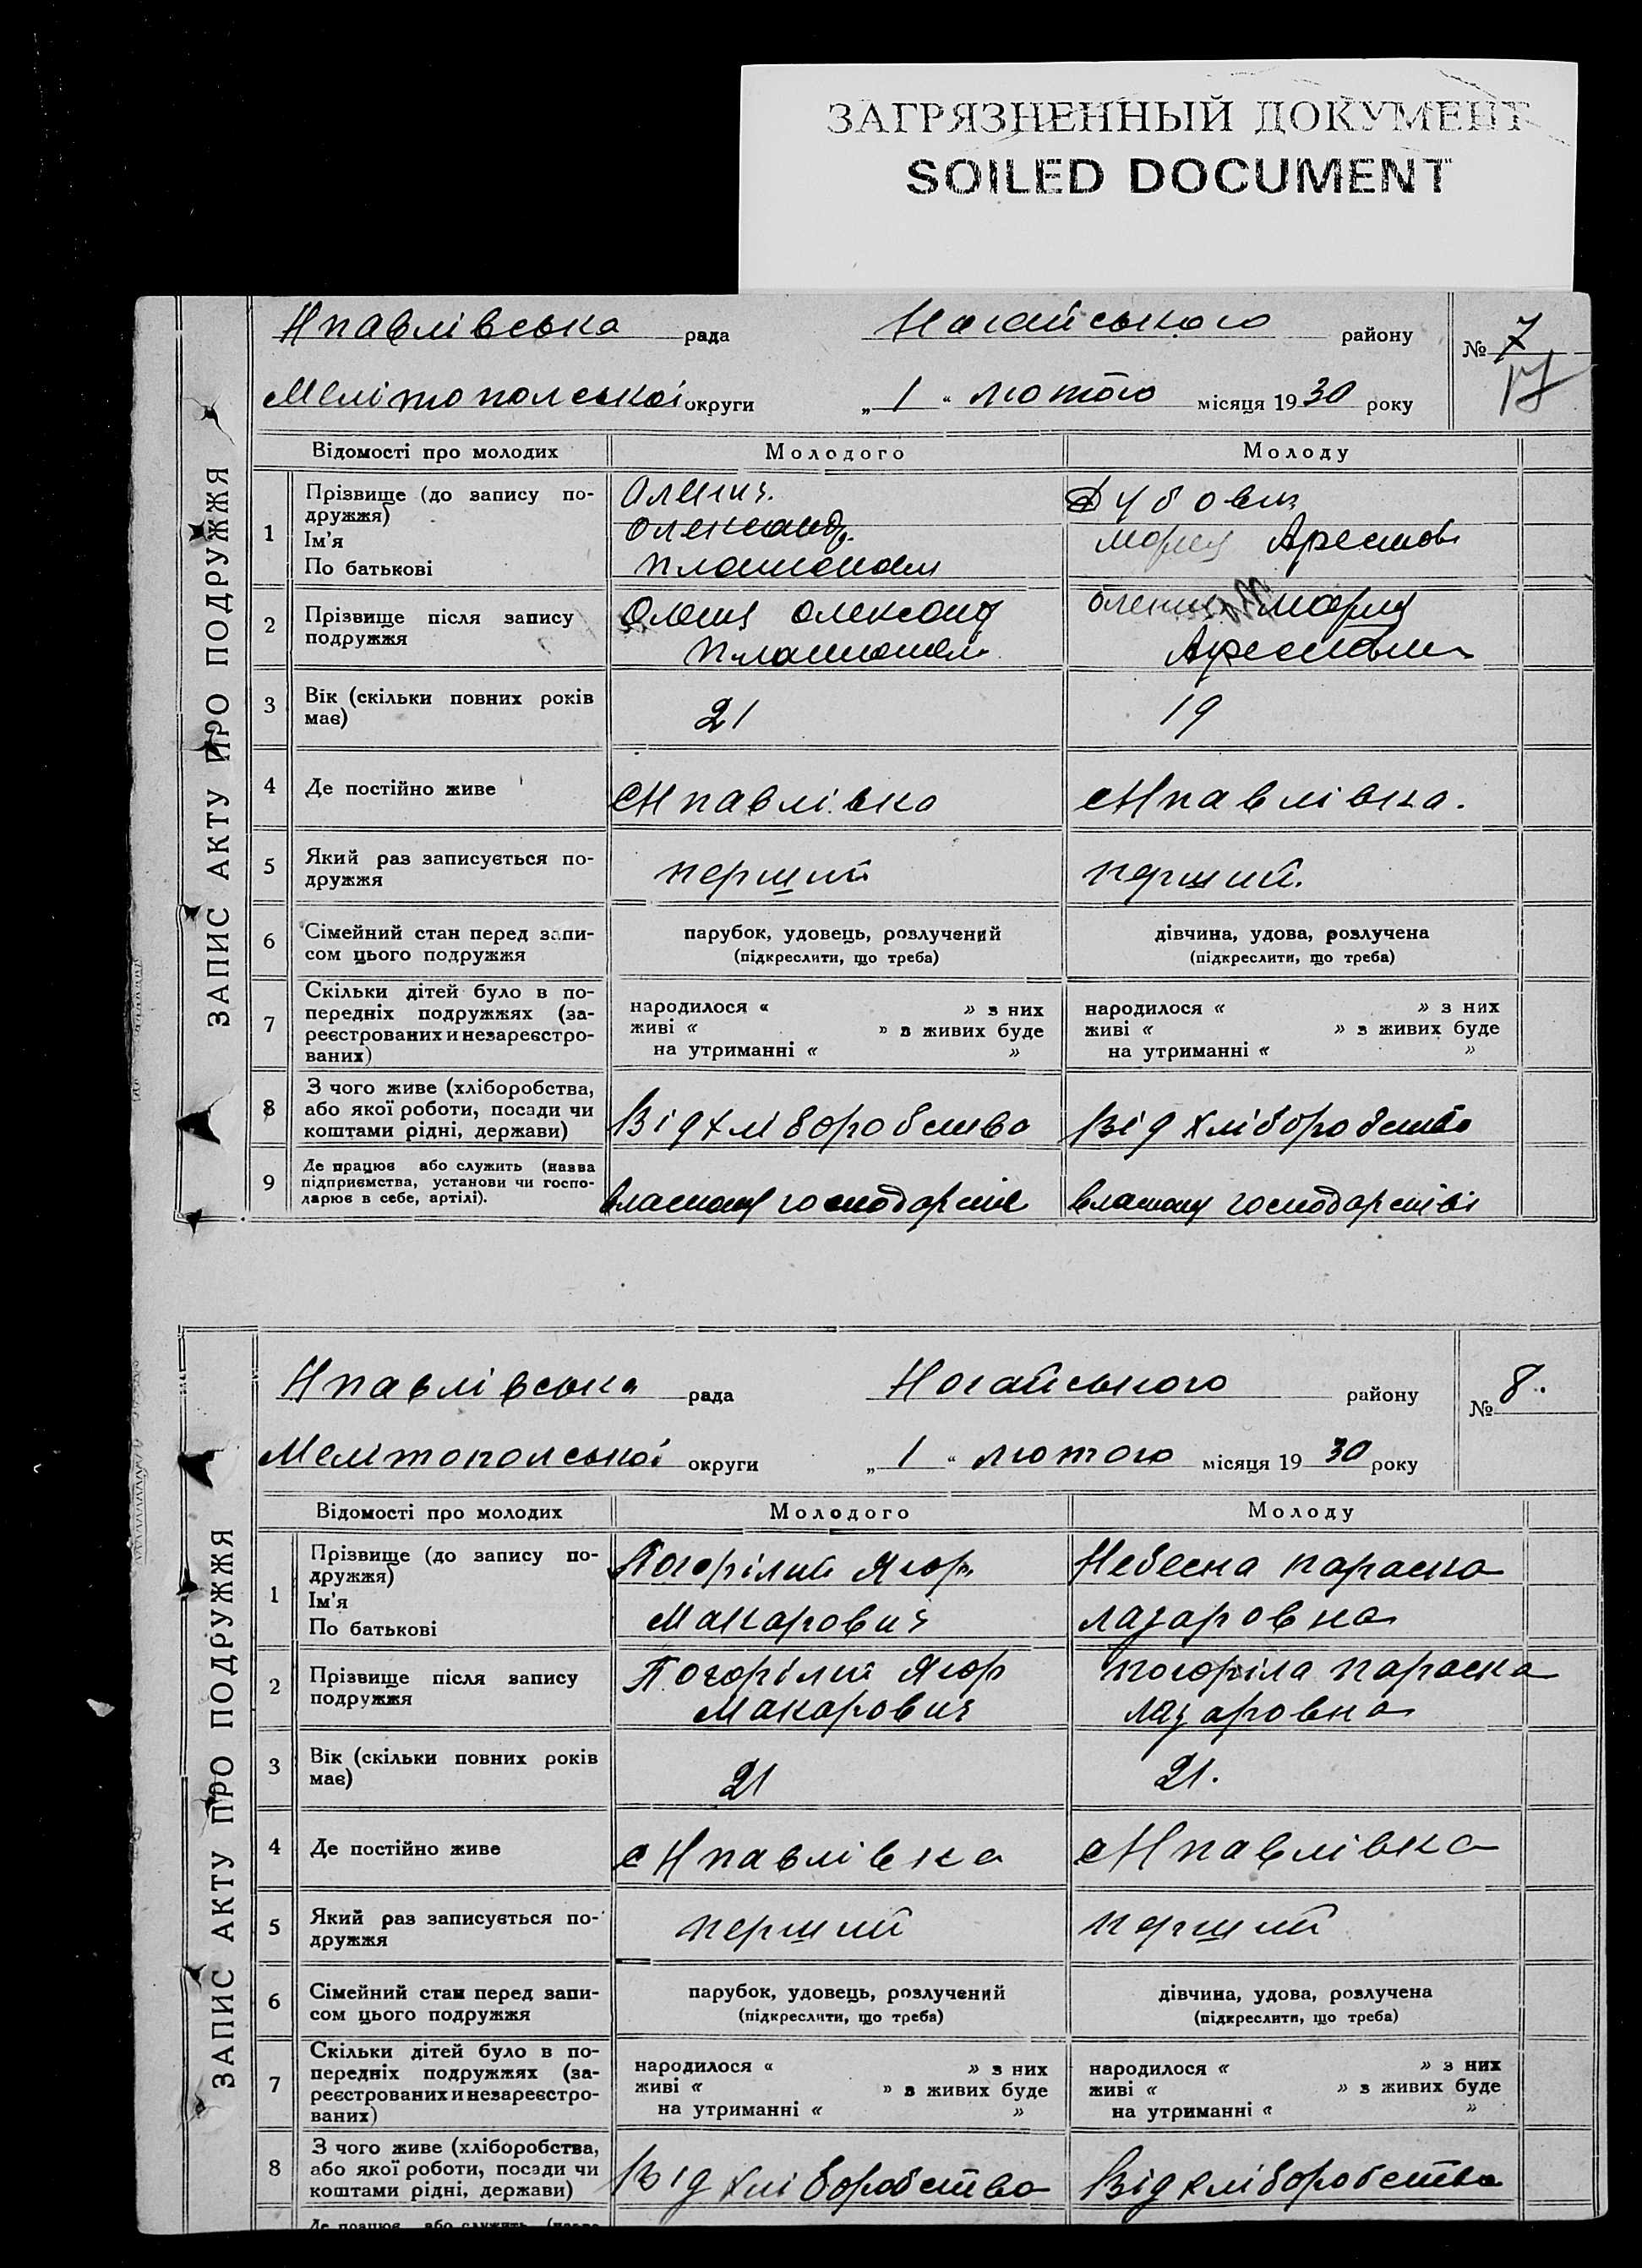 ЗАГРЯЗНЕННЫЙ ДОКУМЕНТ
SOILED DOCUMENT
Нпавлівська рада Ногайського району № 7
17
Мелітополської округи „ 1 “ лютого місяця 1930 року
ЗАПИС АКТУ ПРО ПОДРУЖЖЯ
Відомості про молодих Молодого Молоду
1 Прізвище (до запису по-
дружжя)
Ім'я
По батькові
Олександ.
Мария
2 Прізвище після запису
подружжя
Олександ
Мария
3 Вік (скільки повних років
має) 21 19
4 Де постійно живе сНпавлівка сНпавлівка.
5 Який раз записується по-
дружжя перший перший.
6 Сімейний стан перед запи-
сом цього подружжя
парубок, удовець, розлучений
(підкреслити, що треба)
дівчина, удова, розлучена
(підкреслити, що треба)
7 Скільки дітей було в по-
передніх подружжях (за-
реєстрованих и незареєстро-
ваних)
народилося « » з них
живі « » з живих буде
на утриманні « »
народилося « » з них
живі « » з живих буде
на утриманні « »
8 З чого живе (хліборобства,
або якої роботи, посади чи
коштами рідні, держави)
Від хліборобства Від хліборобства
9 Де працює або служить (назва
підприємства, установи чи госпо-
дарює в себе, артілі).
господарстві
Нпавлівська рада Ногайського району № 8.
Мелітополської округи „ 1 “ лютого місяця 1930 року
ЗАПИС АКТУ ПРО ПОДРУЖЖЯ
Відомості про молодих Молодого Молоду
1 Прізвище (до запису по-
дружжя)
Ім'я
По батькові
Погорілий Ягор
Макарович
Небесна Параска
Лазаровна
2 Прізвище після запису
подружжя
Погорілий Ягор
Макарович
Погоріла Параска
Лазаровна
3 Вік (скільки повних років
має) 21 21.
4 Де постійно живе сНпавлівка сНпавлівка
5 Який раз записується по-
дружжя перший перший
6 Сімейний стан перед запи-
сом цього подружжя
парубок, удовець, розлучений
(підкреслити, що треба)
дівчина, удова, розлучена
(підкреслити, що треба)
7 Скільки дітей було в по-
передніх подружжях (за-
реєстрованих и незареєстро-
ваних)
народилося « » з них
живі « » з живих буде
на утриманні « »
народилося « » з них
живі « » з живих буде
на утриманні « »
8 З чого живе (хліборобства,
або якої роботи, посади чи
коштами рідні, держави)
Від хліборобства Від хліборобства